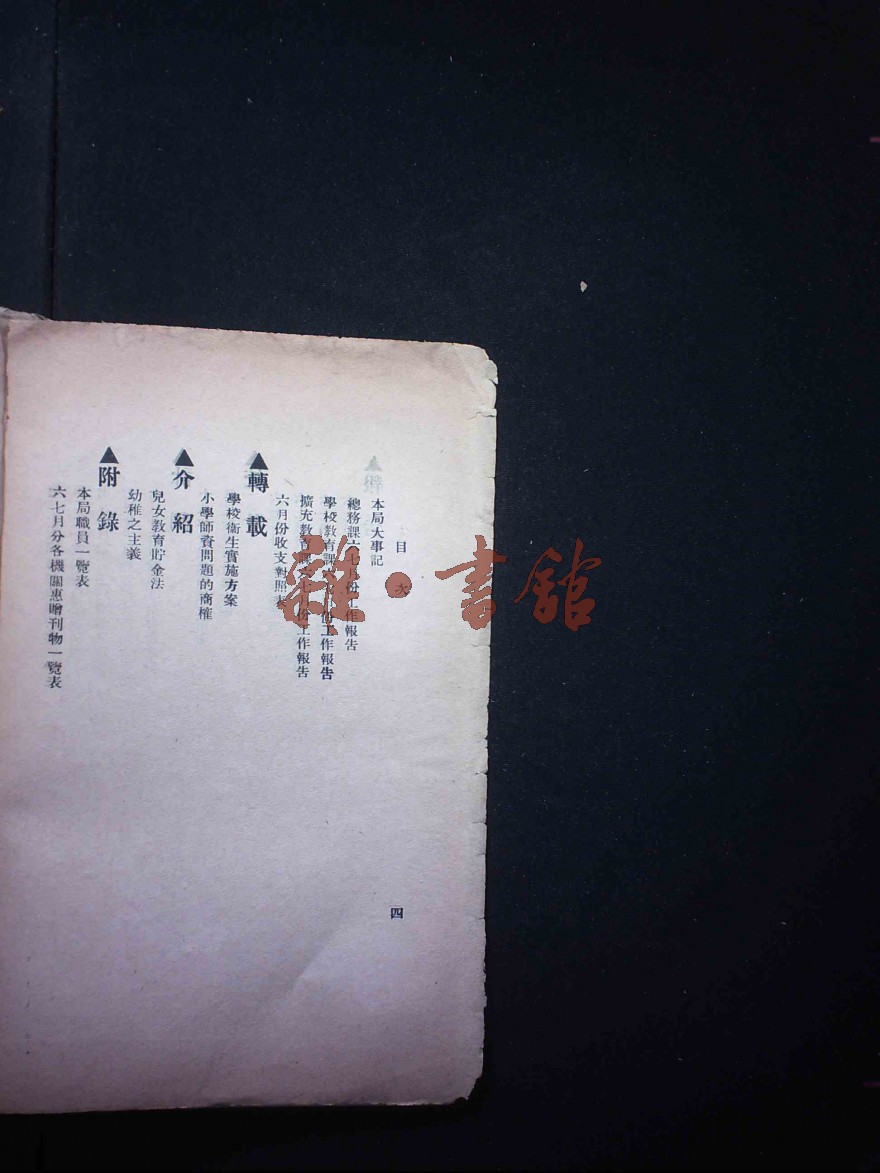 目次
本局大事記
總務課六七月份工作報告
學校教育課 份工作報告
擴充教育課 七 份工作報告
六月份收支對照表
▲轉載
學校衛生實施方案
小學師資問題的商榷
▲介紹
兒女教育貯金法
幼稚之主義
▲附錄
本局職員一覽表
六七月分各機關惠贈刊物一覽表
四
雜·書館